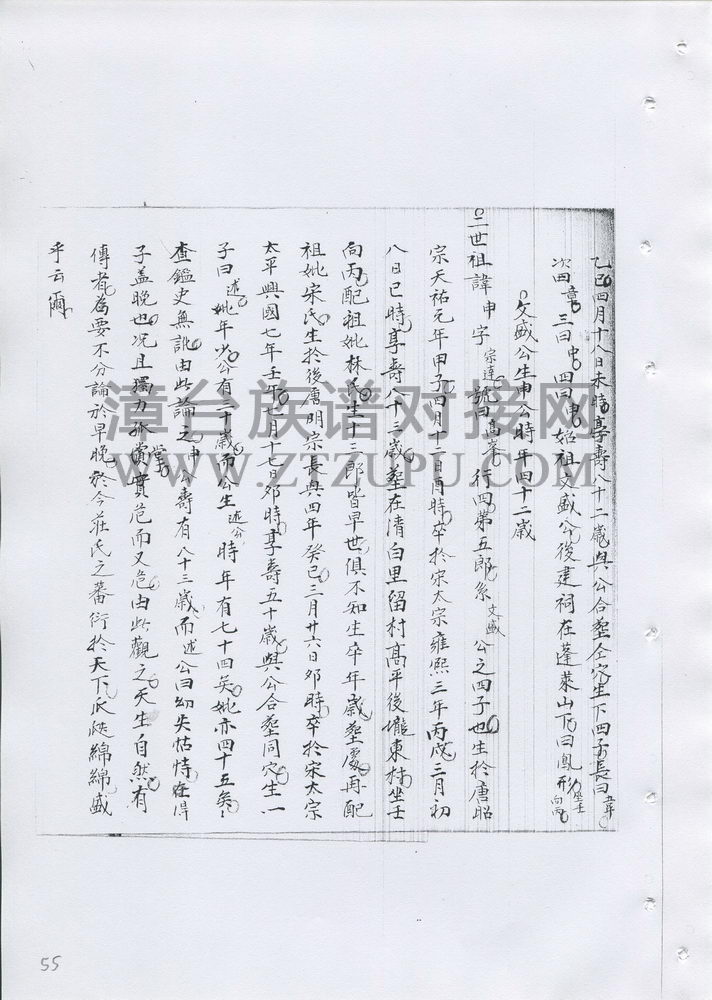 乙巳四月十八日未時享壽八十二歲與公合塟仝穴生下四子長曰
次曰章三曰申四曰申始祖文盛公後建祠在蓬萊山下曰鳳形坐壬向丙
文盛公生申公時年四十二歲
二世祖諱申字宗達號曰高峯行四第五郎系文盛公之四子也生於唐昭
宗天祐元年甲子四月十二日酉時卒於宋太宗雍熙三年丙戌三月初
八日巳時享壽八十三歲塟在清白里留村高平後壠東村坐壬
向丙配祖妣林氏生十三郎皆早世俱不知生卒年歲塟處再配
祖妣宋氏生於後唐明宗長興四年癸巳三月廿六日夘時卒於宋太宗
太平興國七年壬午七月十七日夘時享壽五十歲與公合塟同穴生一
子曰述妣年少公有三十歲而公生述公時年有七十四矣妣亦四十五矣
查鑑史無訛由此論之申公壽有八十三歲而述公曰幼失怙恃在得
子盖晚也况且獨力孤實危而又危由此觀之天生自然有
傳者為要不分論於早晚於今莊氏之蕃衍於天下瓜瓞綿綿盛
乎云爾
漳台族谱对接网
WWW.ZTZUPU.COM
55